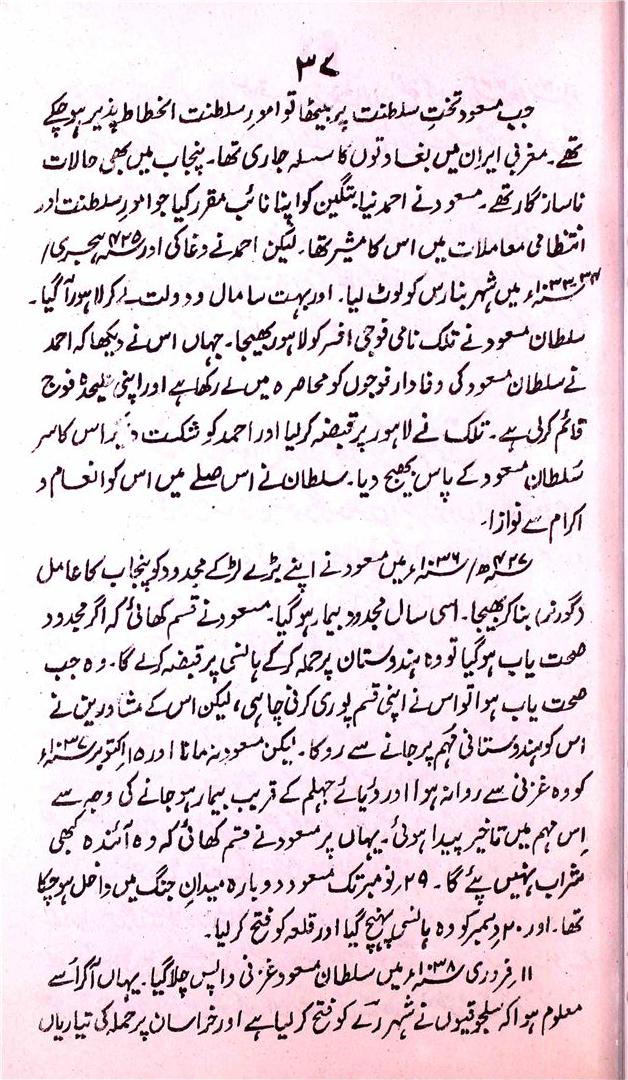 ۳۷
جب مسعود تختِ سلطنت پر بیٹھا تو امورِ سلطنت انحطاط پذیر ہو چکے
تھے۔ مغربی ایران میں بغاوتوں کا سلسلہ جاری تھا۔ پنجاب میں بھی حالات
ناسازگار تھے۔ مسعود نے احمد نیالتگین کو اپنا نائب مقرر کیا جو امورِ سلطنت اور
انتظامی معاملات میں اس کا مشیر تھا۔ لیکن احمد نے دغا کی اور ۴۲۵ ہجری/
۳۴-۱۰۳۳ء میں شہر بنارس کو لوٹ لیا۔ اور بہت سا مال و دولت لے کر لاہور آ گیا۔
سلطان مسعود نے تلک نامی فوجی افسر کو لاہور بھیجا۔ جہاں اس نے دیکھا کہ احمد
نے سلطان مسعود کی وفادار فوجوں کو محاصرہ میں لے رکھا ہے اور اپنی علیٰحدہ فوج
قائم کر لی ہے۔ تلک نے لاہور پر قبضہ کر لیا اور احمد کو شکست دیکر اس کا سر
سُلطان مسعود کے پاس بھیج دیا۔ سلطان نے اس صلے میں اس کو انعام و
اکرام سے نوازا۔
۴۲۷ھ/۱۰۳۶ء میں مسعود نے اپنے بڑے لڑکے مجدود کو پنجاب کا عامل
(گورنر) بنا کر بھیجا۔ اسی سال مجدود بیمار ہو گیا۔ مسعود نے قسم کھائی کہ اگر مجدود
صحت یاب ہو گیا تو وہ ہندوستان پر حملہ کر کے ہانسی پر قبضہ کرے گا۔ وہ جب
صحت یاب ہوا تو اس نے اپنی قسم پوری کرنی چاہی، لیکن اس کے مشاورین نے
اس کو ہندوستانی مہم پر جانے سے روکا۔ لیکن مسعود نہ مانا اور ۵؍اکتوبر ۱۰۳۷ء
کو وہ غزنی سے روانہ ہوا اور دریائے جہلم کے قریب بیمار ہو جانے کی وجہ سے
اِس مہم میں تاخیر پیدا ہوئی۔ یہاں پر مسعود نے قسم کھائی کہ وہ آئندہ کبھی
شراب نہیں پئے گا۔ ۲۹؍نومبر تک مسعود دوبارہ میدانِ جنگ میں داخل ہو چکا
تھا۔ اور ۲۰ دسمبر کو وہ ہانسی پہنچ گیا اور قلعہ کو فتح کر لیا۔
۱۱؍فروری ۱۰۳۸ء میں سلطان مسعود غزنی واپس چلا گیا۔ یہاں آ کر اُسے
معلوم ہوا کہ سلجوقیوں نے شہر رے کو فتح کر لیا ہے اور خراسان پر حملہ کی تیاریاں